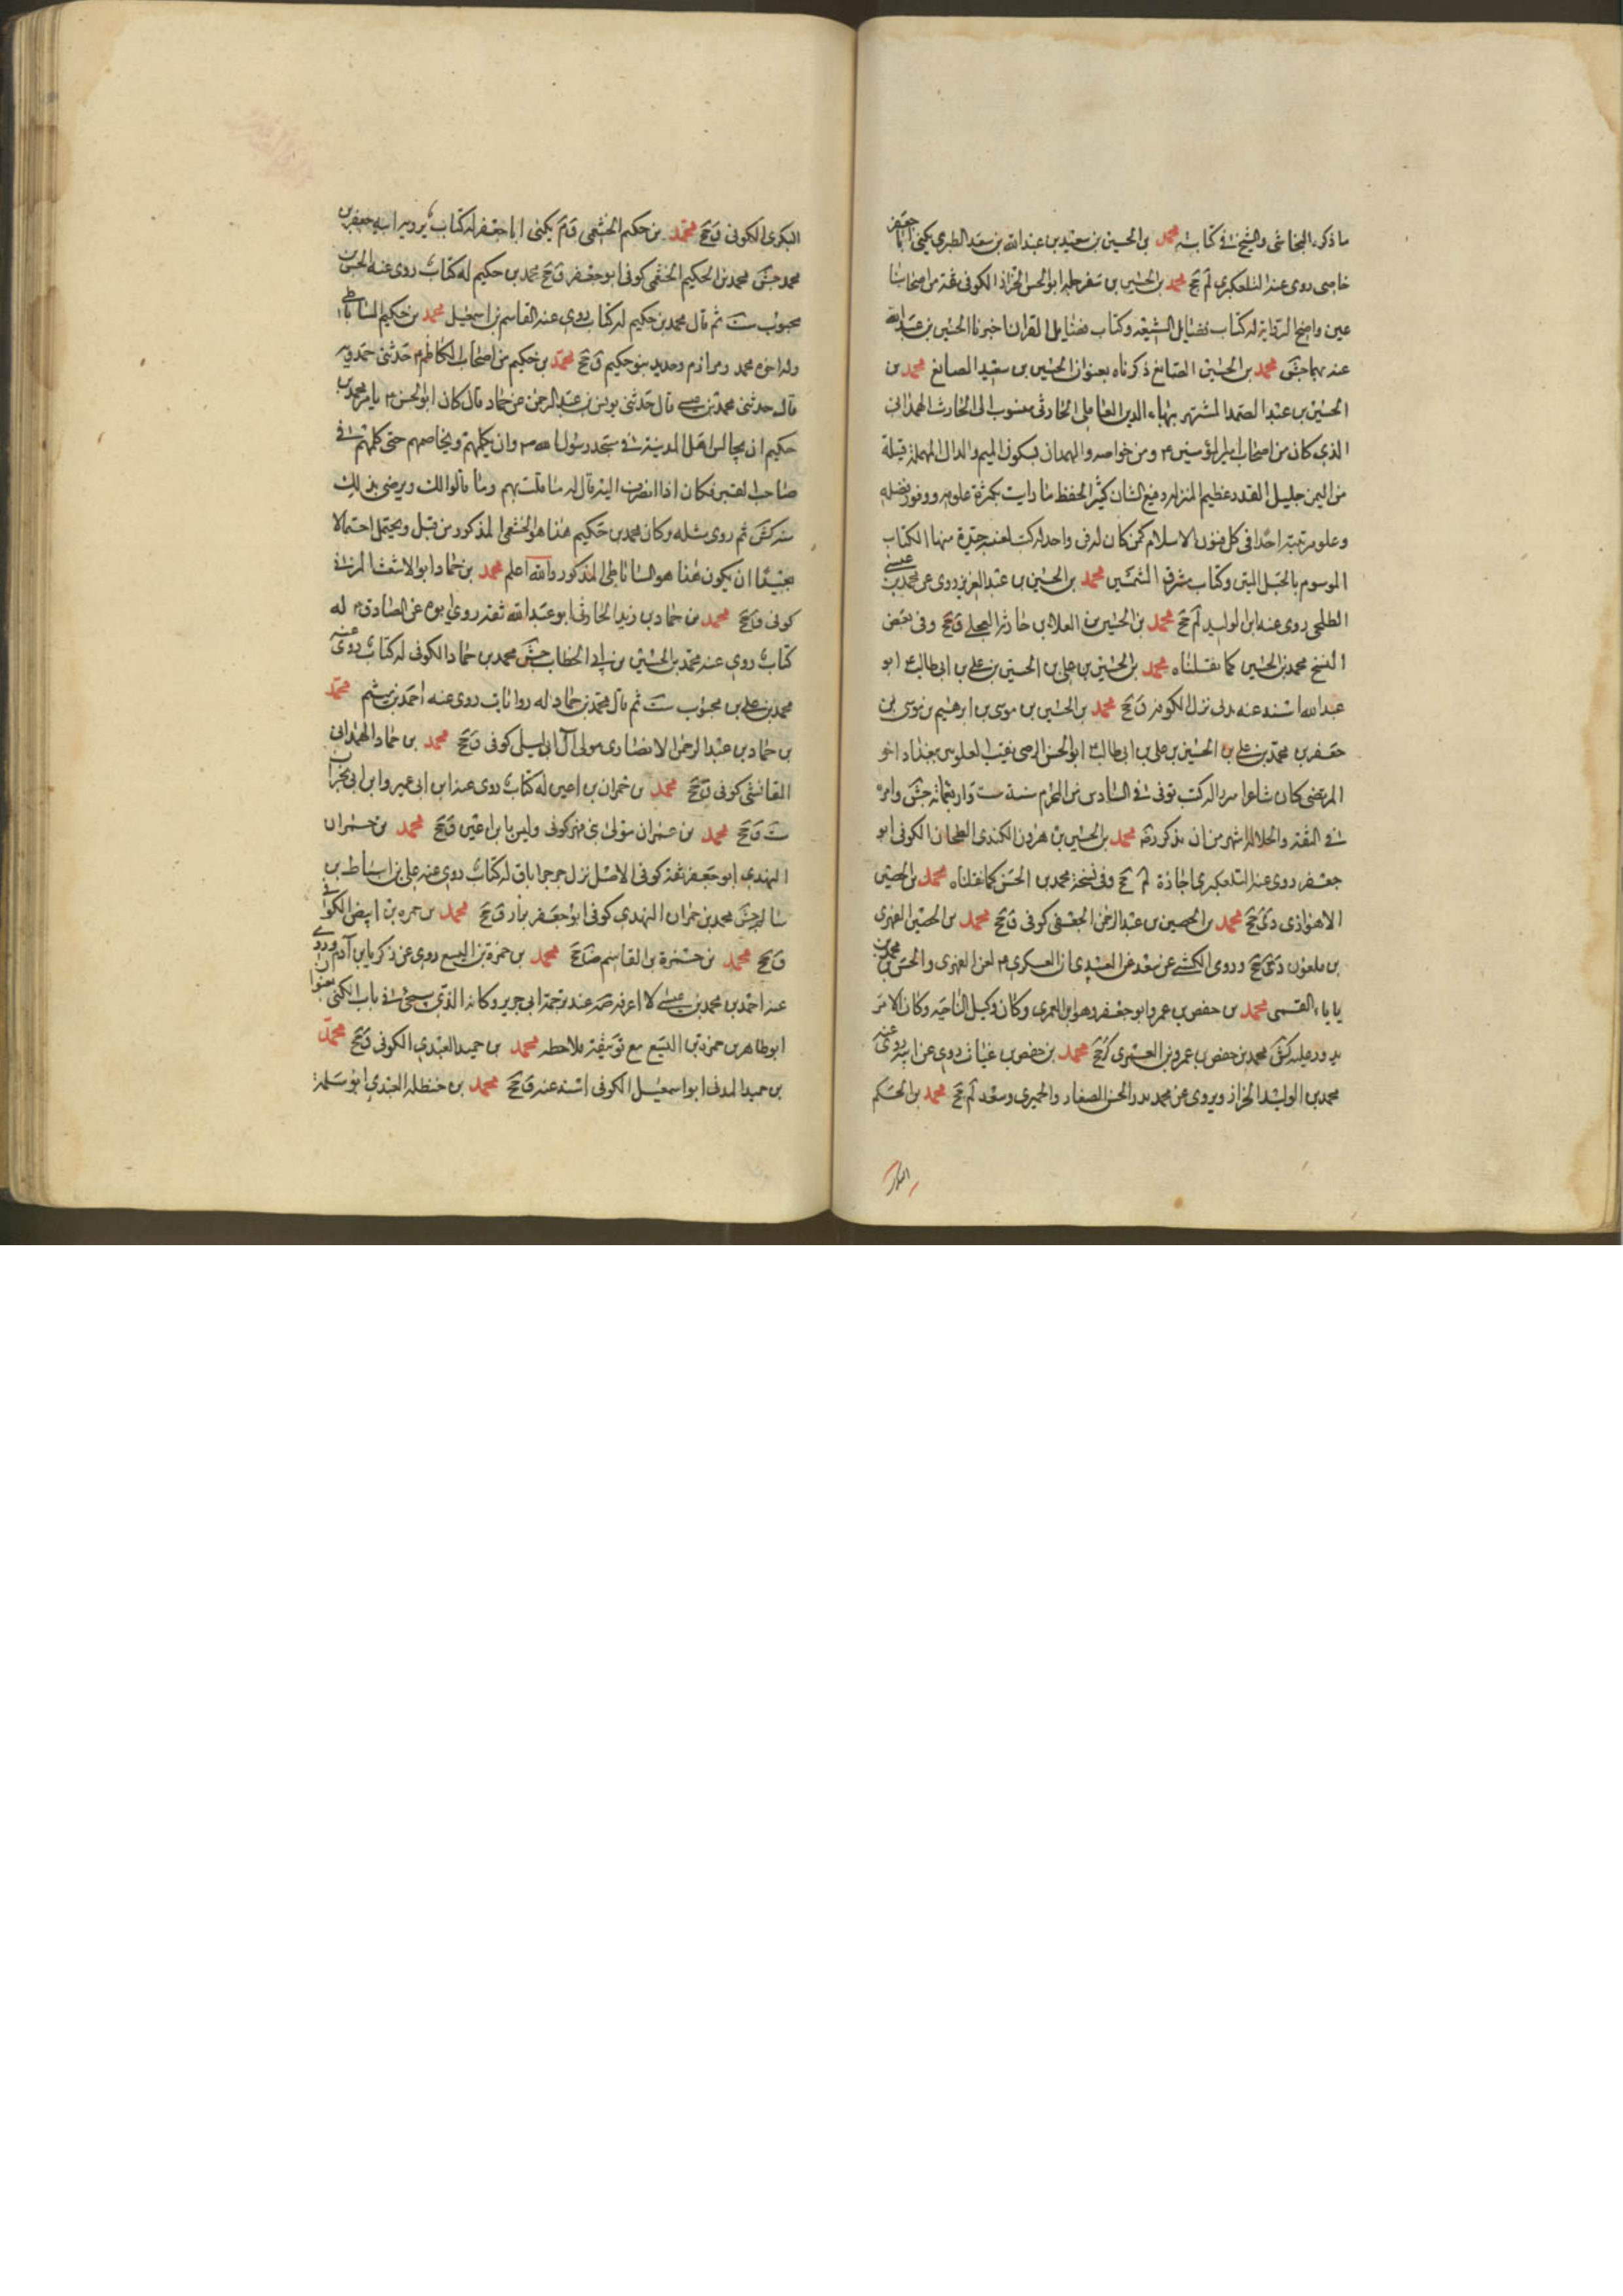 ما ذكره النجاشي والشيخ في كتابيه محمد بن الحسين بن سعيد بن عبدالله بن سعيد الطبري يكنى ابا جعفر
خاصى روى عنه التلعكبري لم جخ محمد بن الحسين بن سفرجله ابو الحسن الخزاز الكوفي ثقة من اصحابنا
عين واضح الرواية له كتاب فضايل الشيعه وكتاب فضايل القران اخبرنا الحسين بن عبيدالله
عنه بهما جش محمد بن الحسين الصايغ ذكرناه بعنوان الحسين بن سعيد الصايغ محمد بن
الحسين بن عبد الصمد المشتهر ببهاء الدين العاملي الحارثي منسوب الى الحارث الهمداني
الذي كان من اصحاب امير المؤمنين ع ومن خواصه والهمدان بسكون الميم والدال المهمله قبيلة
من اليمن جليل القدر عظيم المنزله رفيع الشان كثير الحفظ ما رايت بكثرة علومه ووفور فضله
وعلو مرتبته احدا في كل فنون الاسلام كمن كان له فن واحد له كتب نفيسه جيدة منها الكتاب
الموسوم بالحبل المتين وكتاب مشرق الشمسين محمد بن الحسين بن عبد العزيز روى عن محمد بن عيسى
الطلحي روى عنه ابن الوليد لم جخ محمد بن الحسين بن العلاء بن حارثه البجلي ق جخ وفي بعض
النسخ محمد بن الحسين كما نقلناه محمد بن الحسين بن علي بن الحسين بن علي بن ابي طالب ع ابو
عبدالله اسند عنه مدني نزل الكوفه ق جخ محمد بن الحسين بن موسى بن ابرهيم بن موسى بن
جعفر بن محمد بن علي بن الحسين بن علي بن ابي طالب ع ابو الحسن الرضى نقيب العلويين ببغداد اخو
المرتضى كان شاعرا مبرزا له كتب توفى في السادس من المحرم سنة ست واربعمائه جش وامره
في الثقة والجلالة اشهر من ان يذكر رحمه محمد بن الحسين بن هرون الكندي الطحان الكوفي ابو
جعفر روى عنه التلعكبري اجازة لم جخ وفي نسخة محمد بن الحسن كما نقلناه محمد بن الحصين
الاهوازي دى جخ محمد بن الحصين بن عبدالرحمن الجعفي كوفي ق جخ محمد بن الحصين الفهري
بن ملعون دى جخ وروى الكشي عن سعد عن العبيدي ان العسكري ع لعن الفهري والحسن بن محمد بن
بابا القمي محمد بن حفص بن عمرو ابو جعفر وهو ابن العمري وكان وكيل الناحيه وكان الامر
يدور عليه كش محمد بن حفص بن عمرو بن العمري كر جخ محمد بن حفص بن غياث روى عن ابيه روى عنه
محمد بن الوليد الخزاز ويروى عن محمد الحسن الصفار والحميري وسعد لم جخ محمد بن الحكم
البكري الكوفي ق جخ محمد بن حكيم الخثعمي ق م يكنى ابا جعفر له كتاب يرويه ابنه جعفر بن
محمد جش محمد بن الحكيم الخثعمي كوفي ابو جعفر ق جخ محمد بن حكيم له كتاب روى عنه الحسن بن
محبوب ست ثم قال محمد بن حكيم له كتاب روى عنه القاسم بن اسمعيل محمد بن حكيم الساباطي
وله اخوه محمد ومرازم وحديد بنو حكيم ق جخ محمد بن حكيم من اصحاب الكاظم ع حدثني حمدويه
قال حدثني محمد بن عيسى قال حدثني يونس بن عبدالرحمن عن حماد قال كان ابو الحسن ع يامر محمد بن
حكيم ان يجالس اهل المدينة في مسجد رسول الله ص وان يكلمهم ويخاصمهم حتى كلمهم في
صاحب القبر فكان اذا انصرف اليه قال له ما قلت لهم وما قالوا لك ويرضى بذلك
منه كش ثم روى مثله وكان محمد بن حكيم هذا هو الخثعمي المذكور من قبل ويحتمل احتمالا
بعيدا ان يكون هذا هو الساباطي المذكور والله اعلم محمد بن حماد ابو الاشعث المزني
كوفي ق جخ محمد بن حماد بن زيد الحارثي ابو عبدالله ثقه روى ابوه عن الصادق ع له
كتاب روى عنه محمد بن الحسين بن ابي الخطاب جش محمد بن حماد الكوفي له كتاب روى عنه
محمد بن علي بن محبوب ست ثم قال محمد بن حماد له روايات روى عنه احمد بن ميثم محمد
بن حماد بن عبدالرحمن الانصاري مولى آل ابي ليلى كوفي ق جخ محمد بن حماد الهمداني
الفائشي كوفي ق جخ محمد بن حمران بن اعين له كتاب روى عنه ابن ابي عمير وابن ابي نجران
ست ق جخ محمد بن عمران مولى بني فهر كوفي وليس بابن اعين ق جخ محمد بن حمران
النهدي ابو جعفر ثقه كوفي الاصل نزل جرجرايا ق له كتاب روى عنه علي بن اسباط بن
سالم جش محمد بن حمران النهدي كوفي ابو جعفر بزاز ق جخ محمد بن حمزه بن ابيض الكوفي
ق جخ محمد بن حمزة بن القاسم ضا جخ محمد بن حمزة بن اليسع روى عن زكريا بن آدم وروى
عنه احمد بن محمد بن عيسى لا اعرفه صه عند ترجمة ابي جرير وكانه الذي سيجئ في باب الكنى بعنوان
ابو طاهر بن حمزه بن اليسع مع توثيقه ملاحظه محمد بن حميد العبدي الكوفي ق جخ محمد
بن حميد المدني ابو اسمعيل الكوفي اسند عنه ق جخ محمد بن حنظله العبدي ابو سلمة